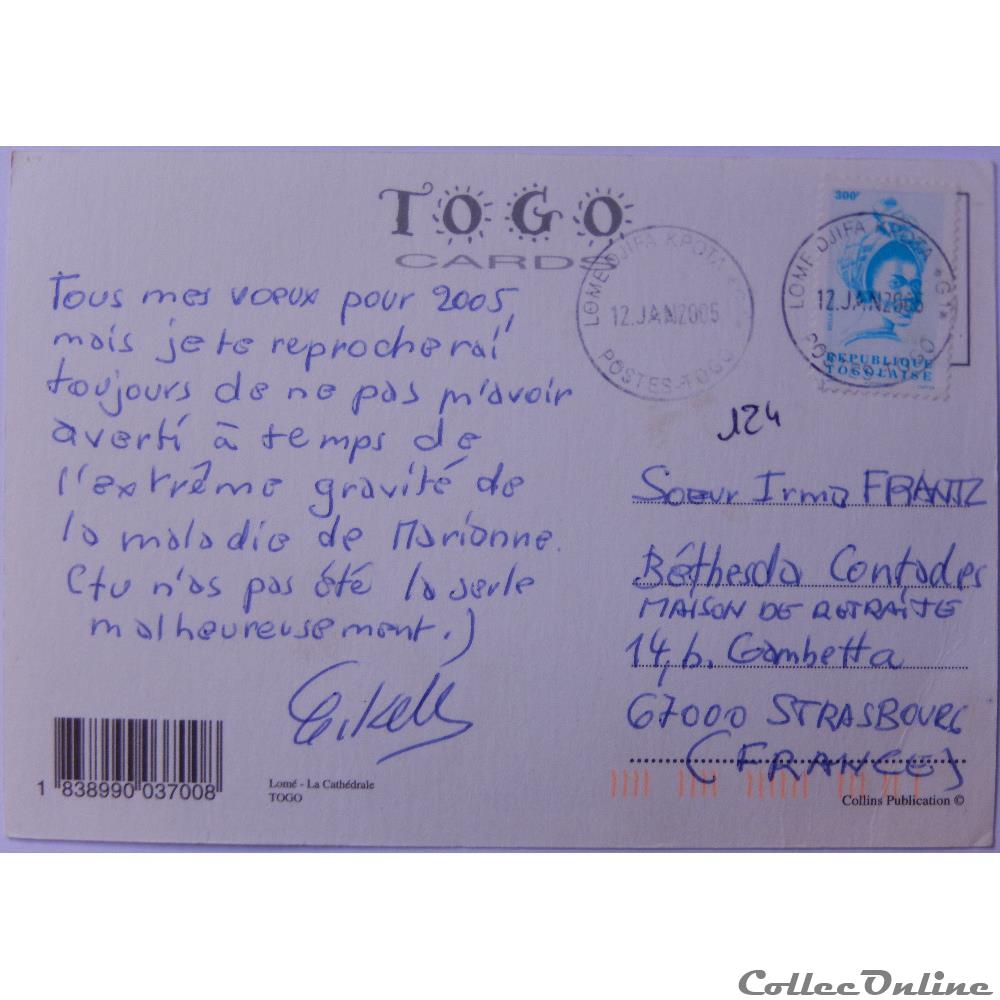 TOGO
CARDS
Tous mes voeux pour 2005,
mais je te reprocherai
toujours de ne pas m'avoir
averti à temps de
l'extrême gravité de
la maladie de Marianne.
(tu n'as pas été la seule
malheureusement.)
LOME DJIFA KPOTA
12.JAN2005
POSTES-TOGO
300F
REPUBLIQUE
TOGOLAISE
LOME DJIFA KPOTA
12.JAN2005
124
Soeur Irma FRANTZ
Béthesda Contades
MAISON DE RETRAITE
14, b. Gambetta
67000 STRASBOURG
(FRANCE)
1 838990 037008
Lomé - La Cathédrale
TOGO
Collins Publication ©
CollecOnline